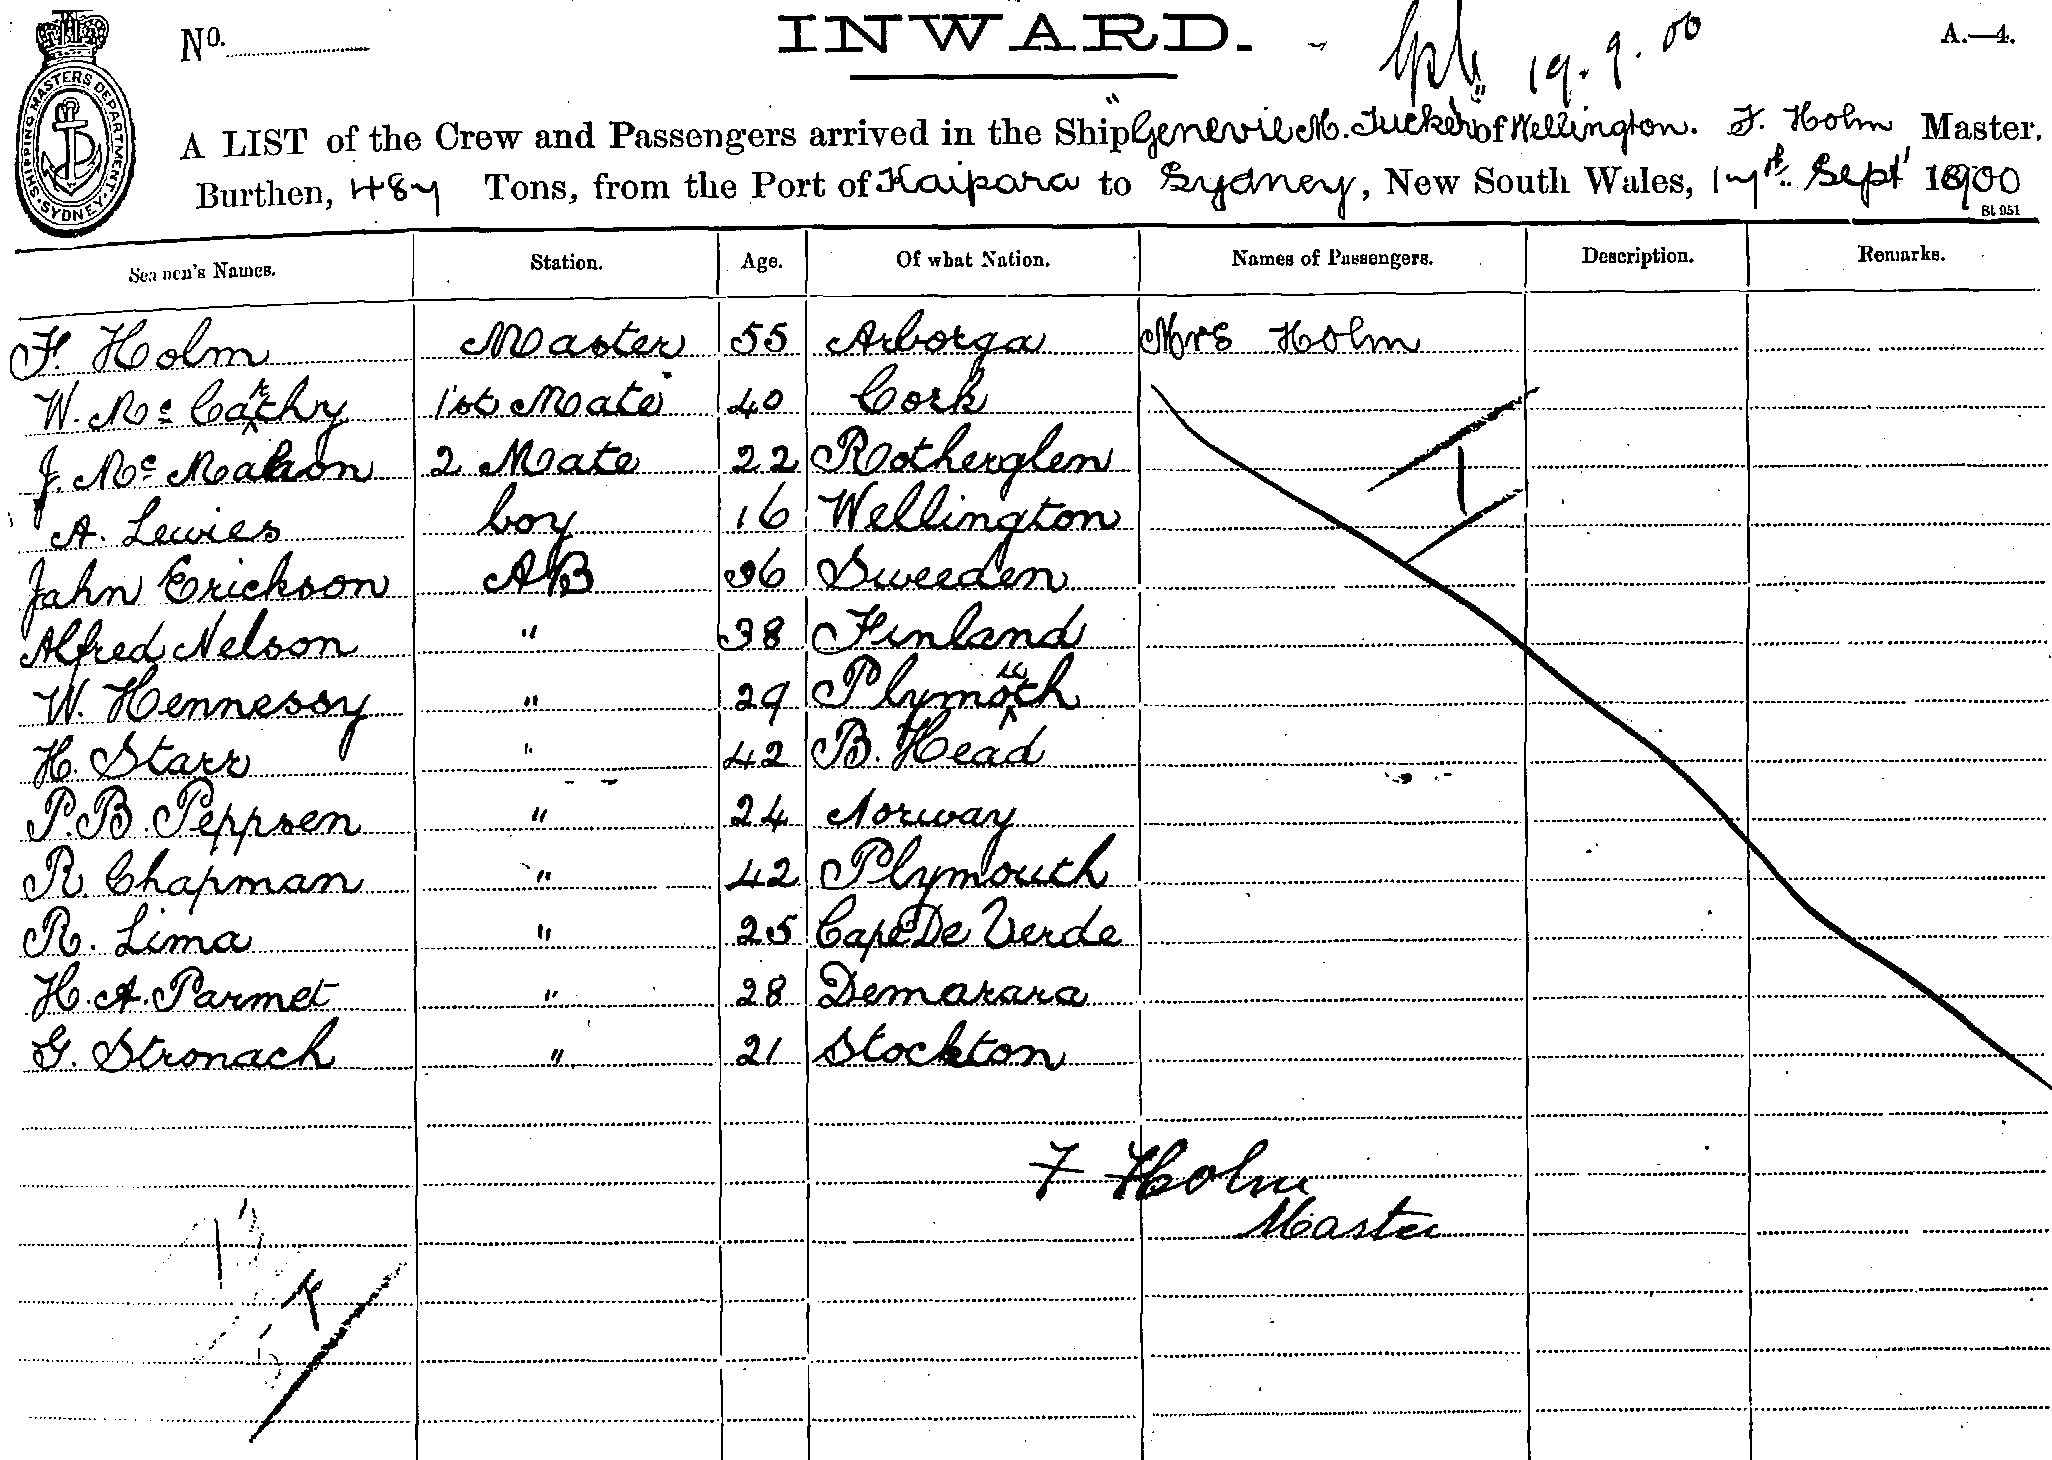 No. INWARD. 19.9.00 A.—4.
SHIPPING MASTERS DEPARTMENT. SYDNEY.
A LIST of the Crew and Passengers arrived in the Ship "Genevie M. Tucker" of Wellington. F. Holm Master.
Burthen, 487 Tons, from the Port of Kaipara to Sydney, New South Wales, 17th Sept 1900
Bt 951
Seamen's Names. Station. Age. Of what Nation. Names of Passengers. Description. Remarks.
F. Holm Master 55 Arborga Mrs Holm
W. Mc Carthy 1st Mate 40 Cork
J. Mc Mahon 2 Mate 22 Rotherglen
A. Lewies boy 16 Wellington
Jahn Erickson AB 36 Sweeden
Alfred Nelson " 38 Finland
W. Hennessy " 29 Plymouth
H. Starr " 42 B. Head
P. B. Peppsen " 24 Norway
R. Chapman " 42 Plymouth
R. Lima " 25 Cape De Verde
H. A. Parmet " 28 Demarara
G. Stronach " 21 Stockton
F Holm
Master